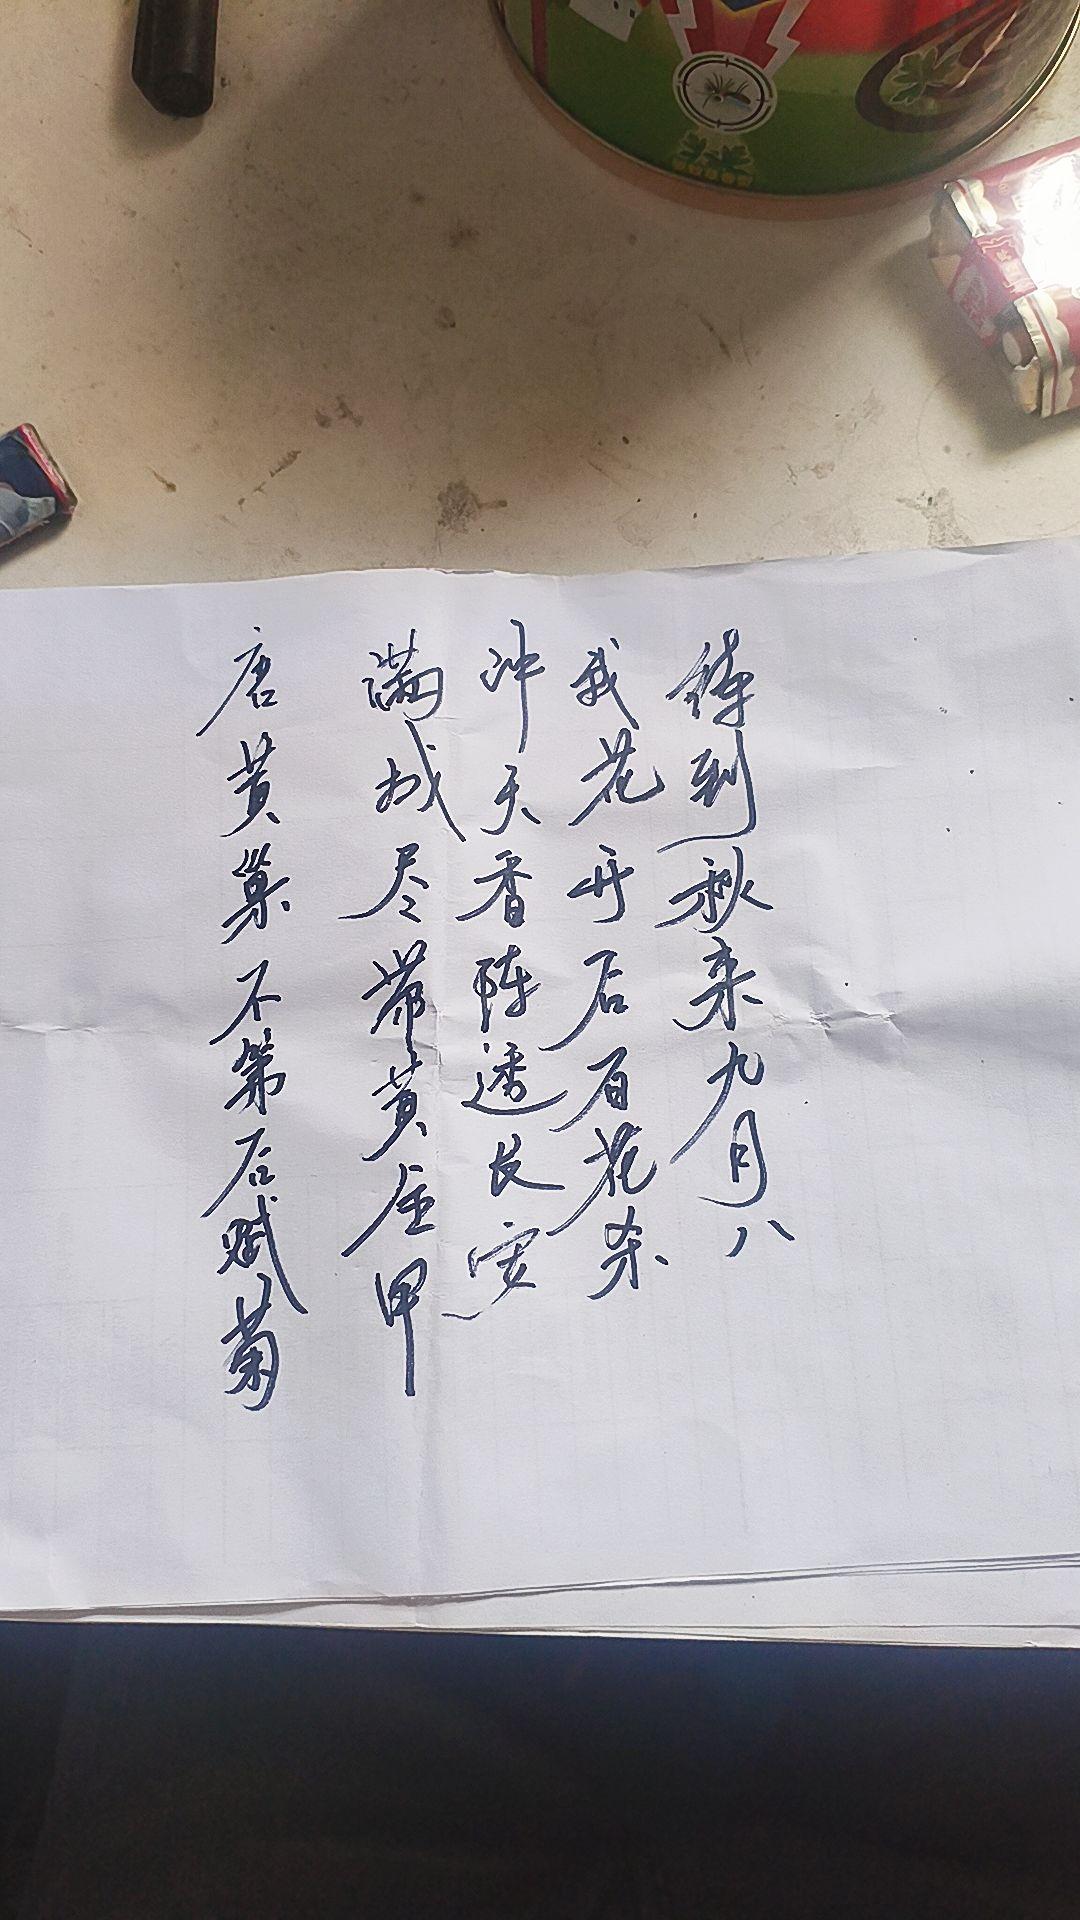 待到秋来九月八
我花开后百花杀
冲天香阵透长安
满城尽带黄金甲
唐黄巢不第后赋菊